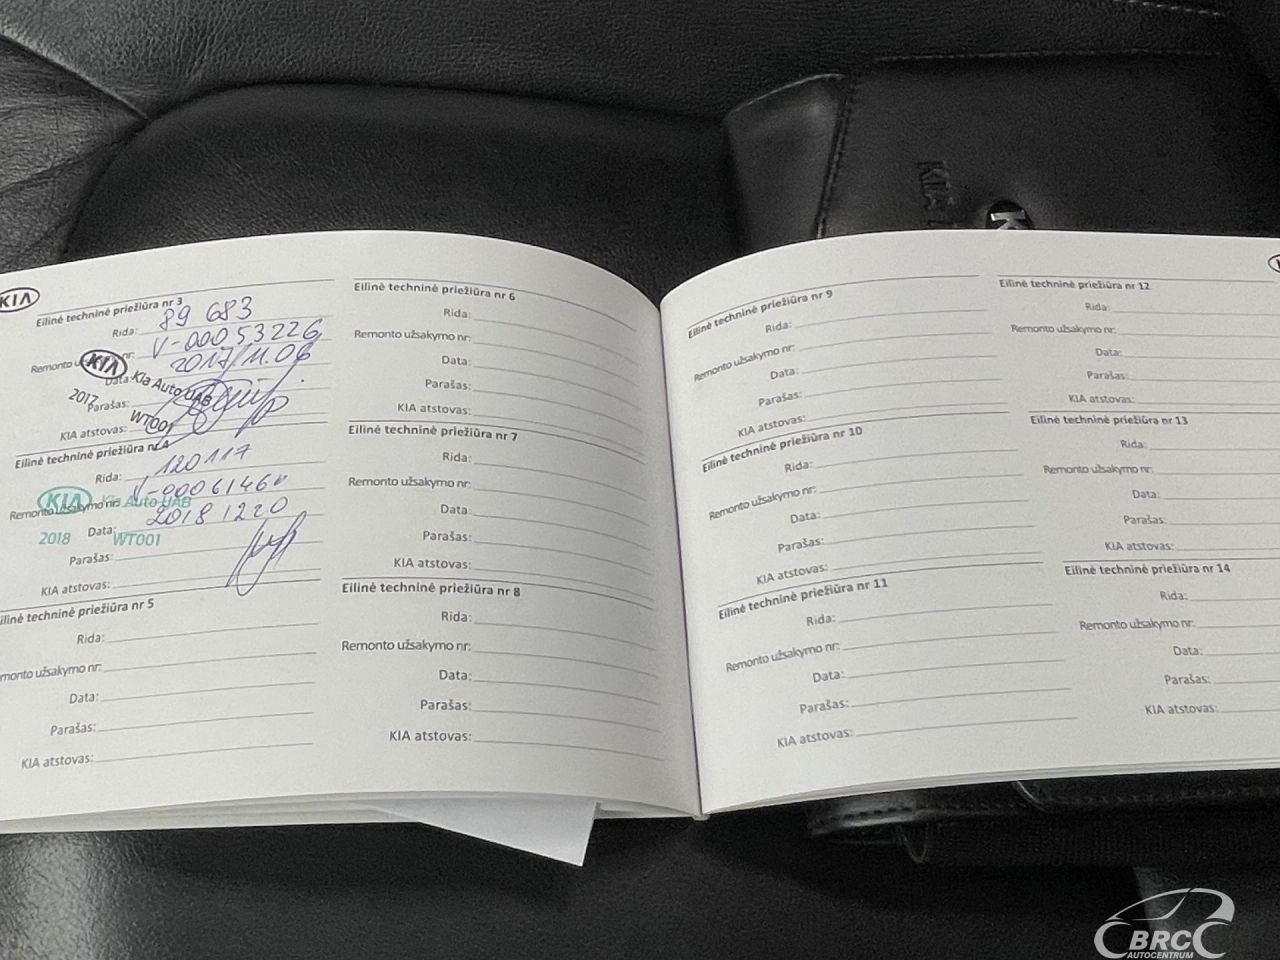 KIA
Eilinė techninė priežiūra nr 3
Rida: 89 683
Remonto užsakymo nr: V-00053226
Data: 2017/11.06
KIA
Kia Auto UAB
2017
WT001
Parašas:
KIA atstovas:
Eilinė techninė priežiūra nr 4
Rida: 120117
Remonto užsakymo nr:
KIA Kia Auto UAB
Data: 2018 1220
2018 WT001
Parašas:
KIA atstovas:
Eilinė techninė priežiūra nr 5
Rida:
Remonto užsakymo nr:
Data:
Parašas:
KIA atstovas:
Eilinė techninė priežiūra nr 6
Rida:
Remonto užsakymo nr:
Data:
Parašas:
KIA atstovas:
Eilinė techninė priežiūra nr 7
Rida:
Remonto užsakymo nr:
Data:
Parašas:
KIA atstovas:
Eilinė techninė priežiūra nr 8
Rida:
Remonto užsakymo nr:
Data:
Parašas:
KIA atstovas:
Eilinė techninė priežiūra nr 9
Rida:
Remonto užsakymo nr:
Data:
Parašas:
KIA atstovas:
Eilinė techninė priežiūra nr 10
Rida:
Remonto užsakymo nr:
Data:
Parašas:
KIA atstovas:
Eilinė techninė priežiūra nr 11
Rida:
Remonto užsakymo nr:
Data:
Parašas:
KIA atstovas:
Eilinė techninė priežiūra nr 12
Rida:
Remonto užsakymo nr:
Data:
Parašas:
KIA atstovas:
Eilinė techninė priežiūra nr 13
Rida:
Remonto užsakymo nr:
Data:
Parašas:
KIA atstovas:
Eilinė techninė priežiūra nr 14
Rida:
Remonto užsakymo nr:
Data:
Parašas:
KIA atstovas:
KIA
BRC
AUTOCENTRUM